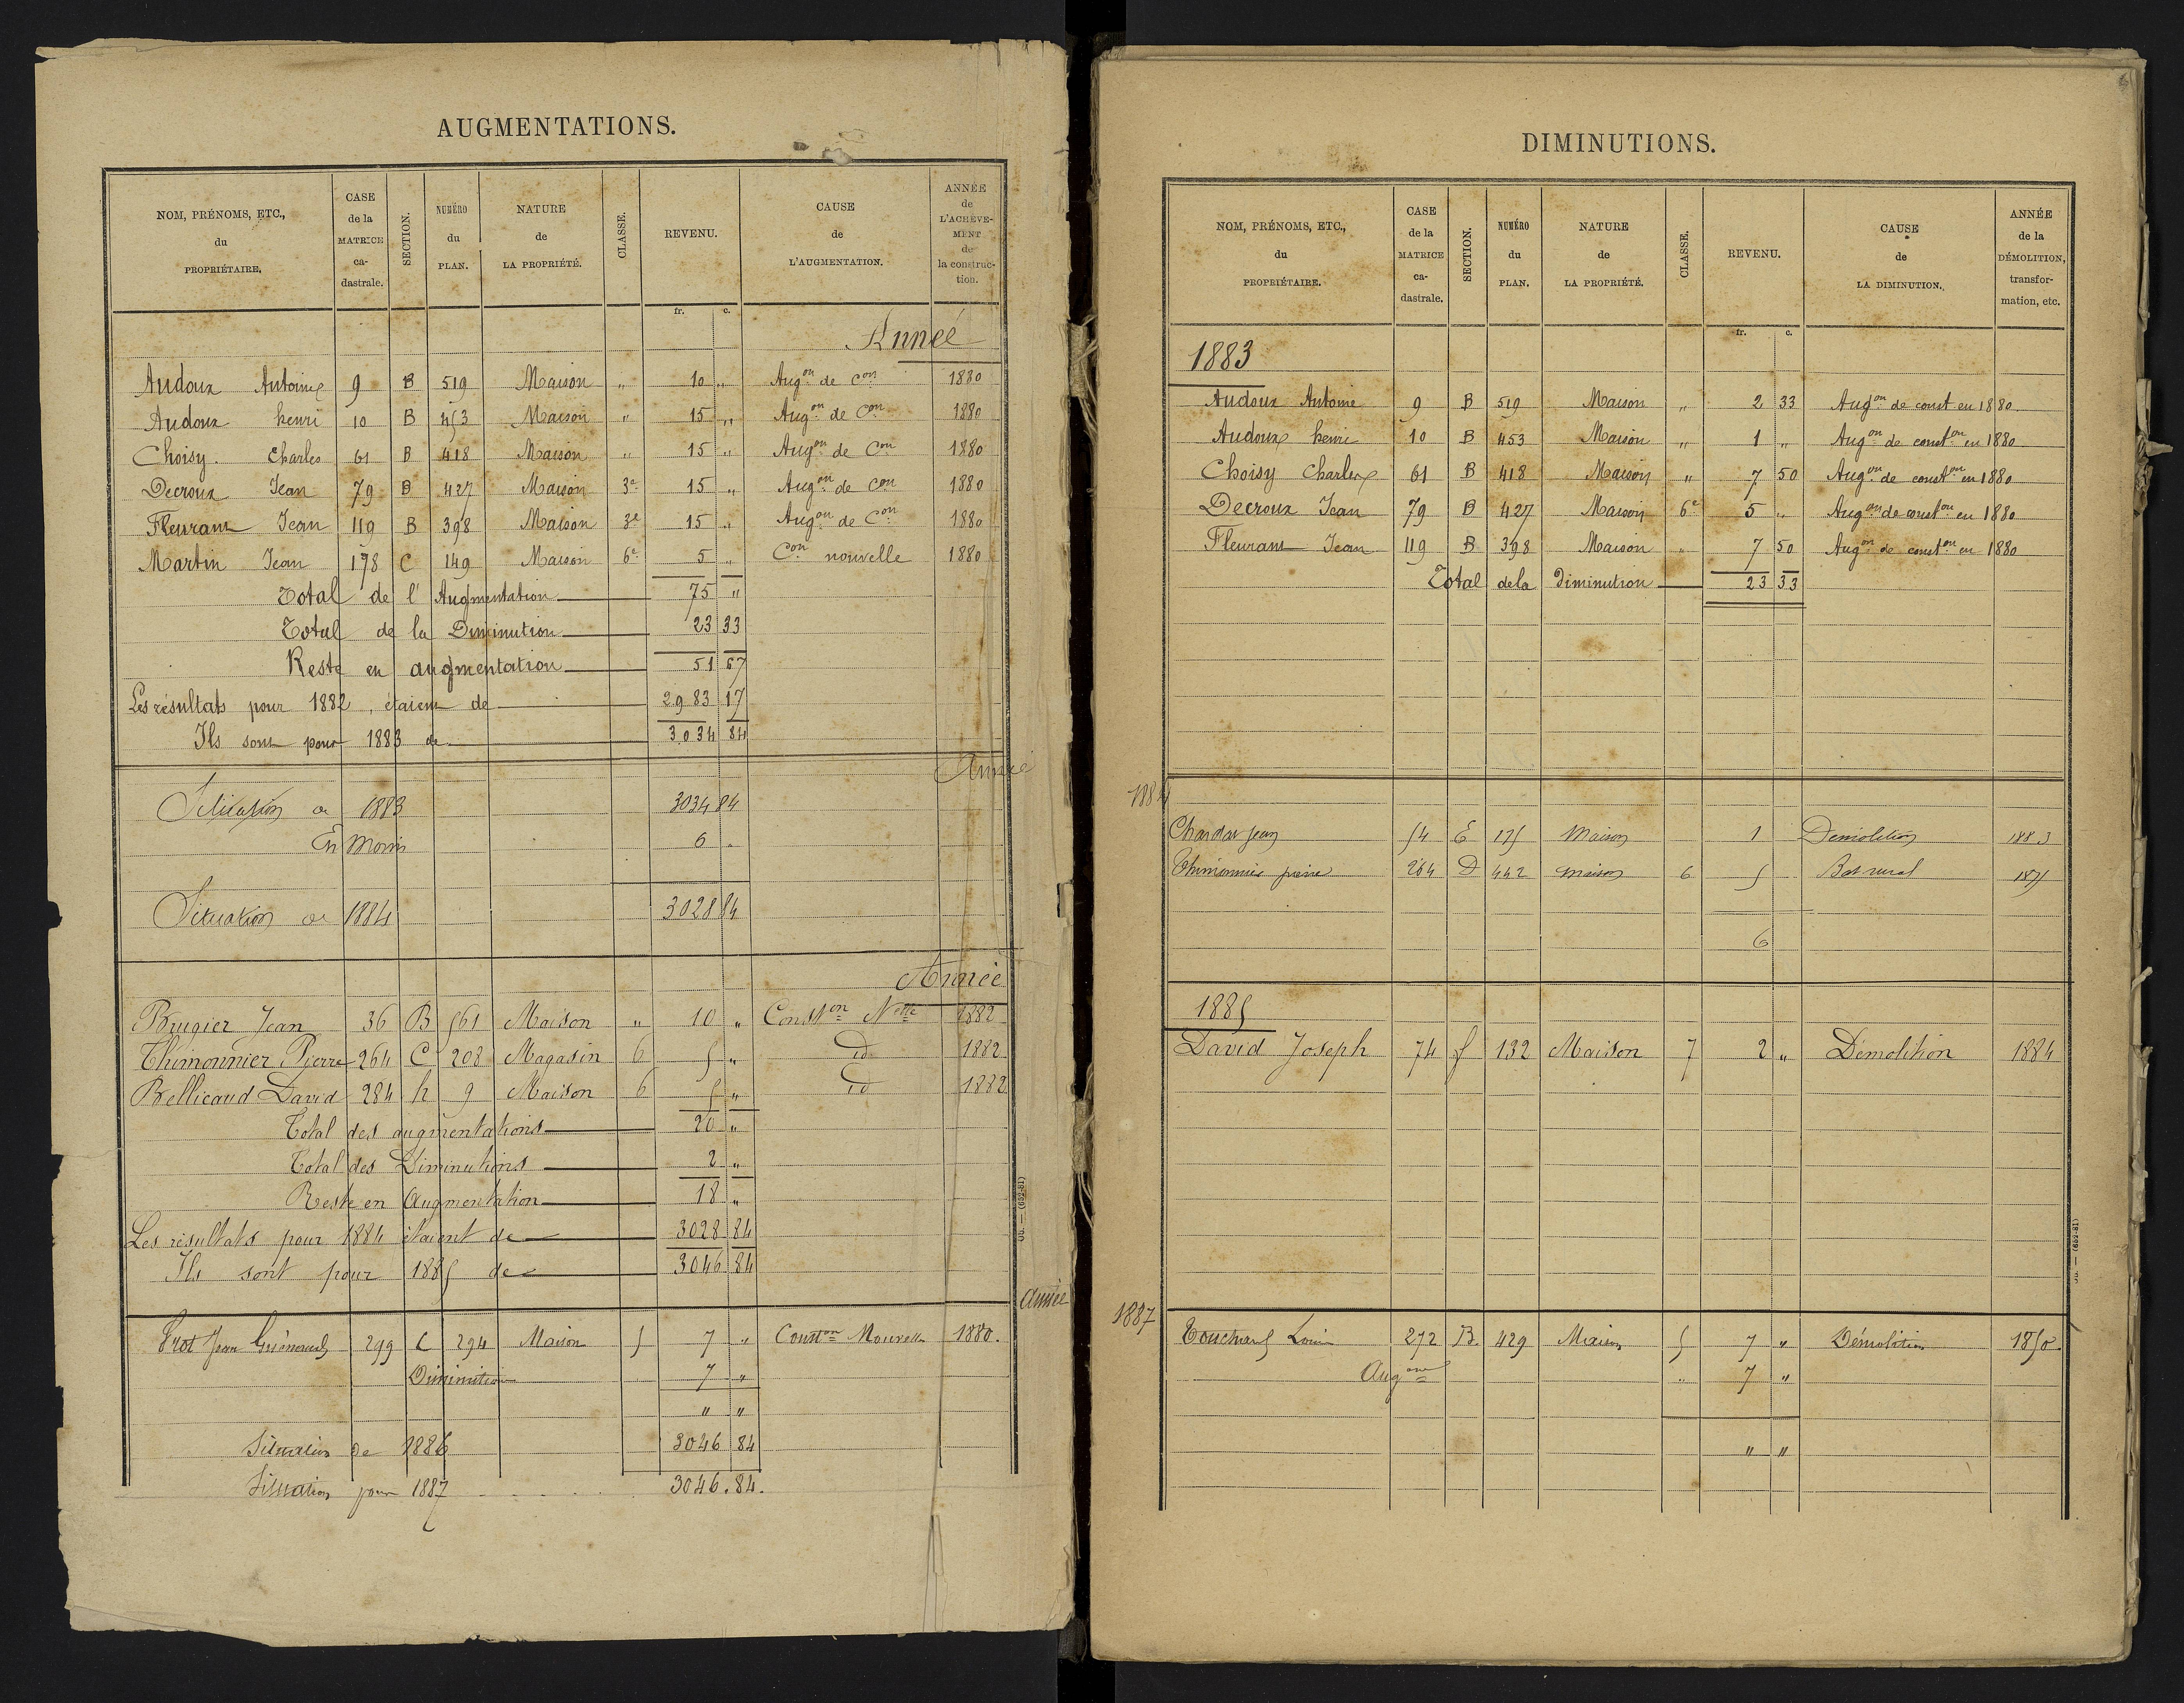 AUGMENTATIONS.
NOM, PRÉNOMS, ETC., du PROPRIÉTAIRE. CASE de la MATRICE ca- dastrale. SECTION. NUMÉRO du PLAN. NATURE de LA PROPRIÉTÉ. CLASSE. REVENU. CAUSE de L'AUGMENTATION. ANNÉE de L'ACHÈVE- MENT de la construc- tion.
fr. c.
Année
Audoux Antoine 9 B 519 Maison " 10 " Aug.on de Con 1880
Audoux henri 10 B 453 Maison " 15 " Aug.on de Con 1880
Choisy. Charles 61 B 418 Maison " 15 " Aug.on de Con 1880
Decroux Jean 79 B 427 Maison 3e 15 " Aug.on de Con 1880
Fleurant Jean 119 B 398 Maison 3e 15 " Aug.on de Con 1880
Martin Jean 178 C 149 Maison 6e 5 " Con nouvelle 1880
Total de l'Augmentation 75 "
Total de la Diminution 23 33
Reste en augmentation 51 67
Les résultats pour 1882, étaient de 2983 17
Ils sont pour 1883 de 3034 84
Année
Situation de 1883 3034 84
En Moins 6 "
Situation de 1884 3028 84
Année
Brugier Jean 36 B 561 Maison " 10 " Conston Nelle 1882
Thimonnier Pierre 264 C 208 Magasin 6 5 " id 1882
Bellicaud David 284 h 9 Maison 6 5 " id 1882
Total des augmentations 20 "
Total des Diminutions 2 "
Reste en Augmentation 18 "
Les résultats pour 1884 étaient de 3028 84
Ils sont pour 1885 de 3046 84
Année
Jean 299 C 294 Maison 5 7 " Conston Nouvelle 1880.
Diminution 7 "
" "
Situation de 1886 3046 84
Situation pour 1887 3046.84.
DIMINUTIONS.
NOM, PRÉNOMS, ETC., du PROPRIÉTAIRE. CASE de la MATRICE ca- dastrale. SECTION. NUMÉRO du PLAN. NATURE de LA PROPRIÉTÉ. CLASSE. REVENU. CAUSE de LA DIMINUTION. ANNÉE de la DÉMOLITION, transfor- mation, etc.
fr. c.
1883
Audoux Antoine 9 B 519 Maison " 2 33 Augon de const en 1880.
Audoux henri 10 B 453 Maison " 1 " Augon de conston en 1880
Choisy Charles 61 B 418 Maison " 7 50 Augon de conston en 1880
Decroux Jean 79 B 427 Maison 6e 5 " Augon de conston en 1880
Fleurant Jean 119 B 398 Maison " 7 50 Augon de conston en 1880
Total de la diminution 23 33
1884
Jean 54 E 175 Maison 1 Démolition 1883
Thimonnier pierre 264 D 442 maison 6 5 Bat rural
6
1885
David Joseph 74 f 132 Maison 7 2 " Démolition 1884
1887
Louis 272 B. 429 Maison 5 7 " Démolition 1850.
Augon " 7 "
" "